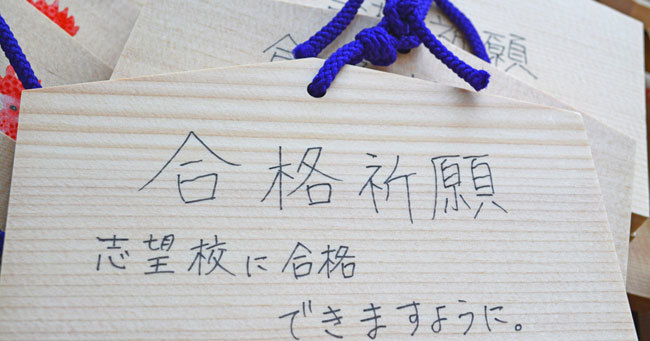 祈願
合
合格祈願
志望校に合格
できますように。